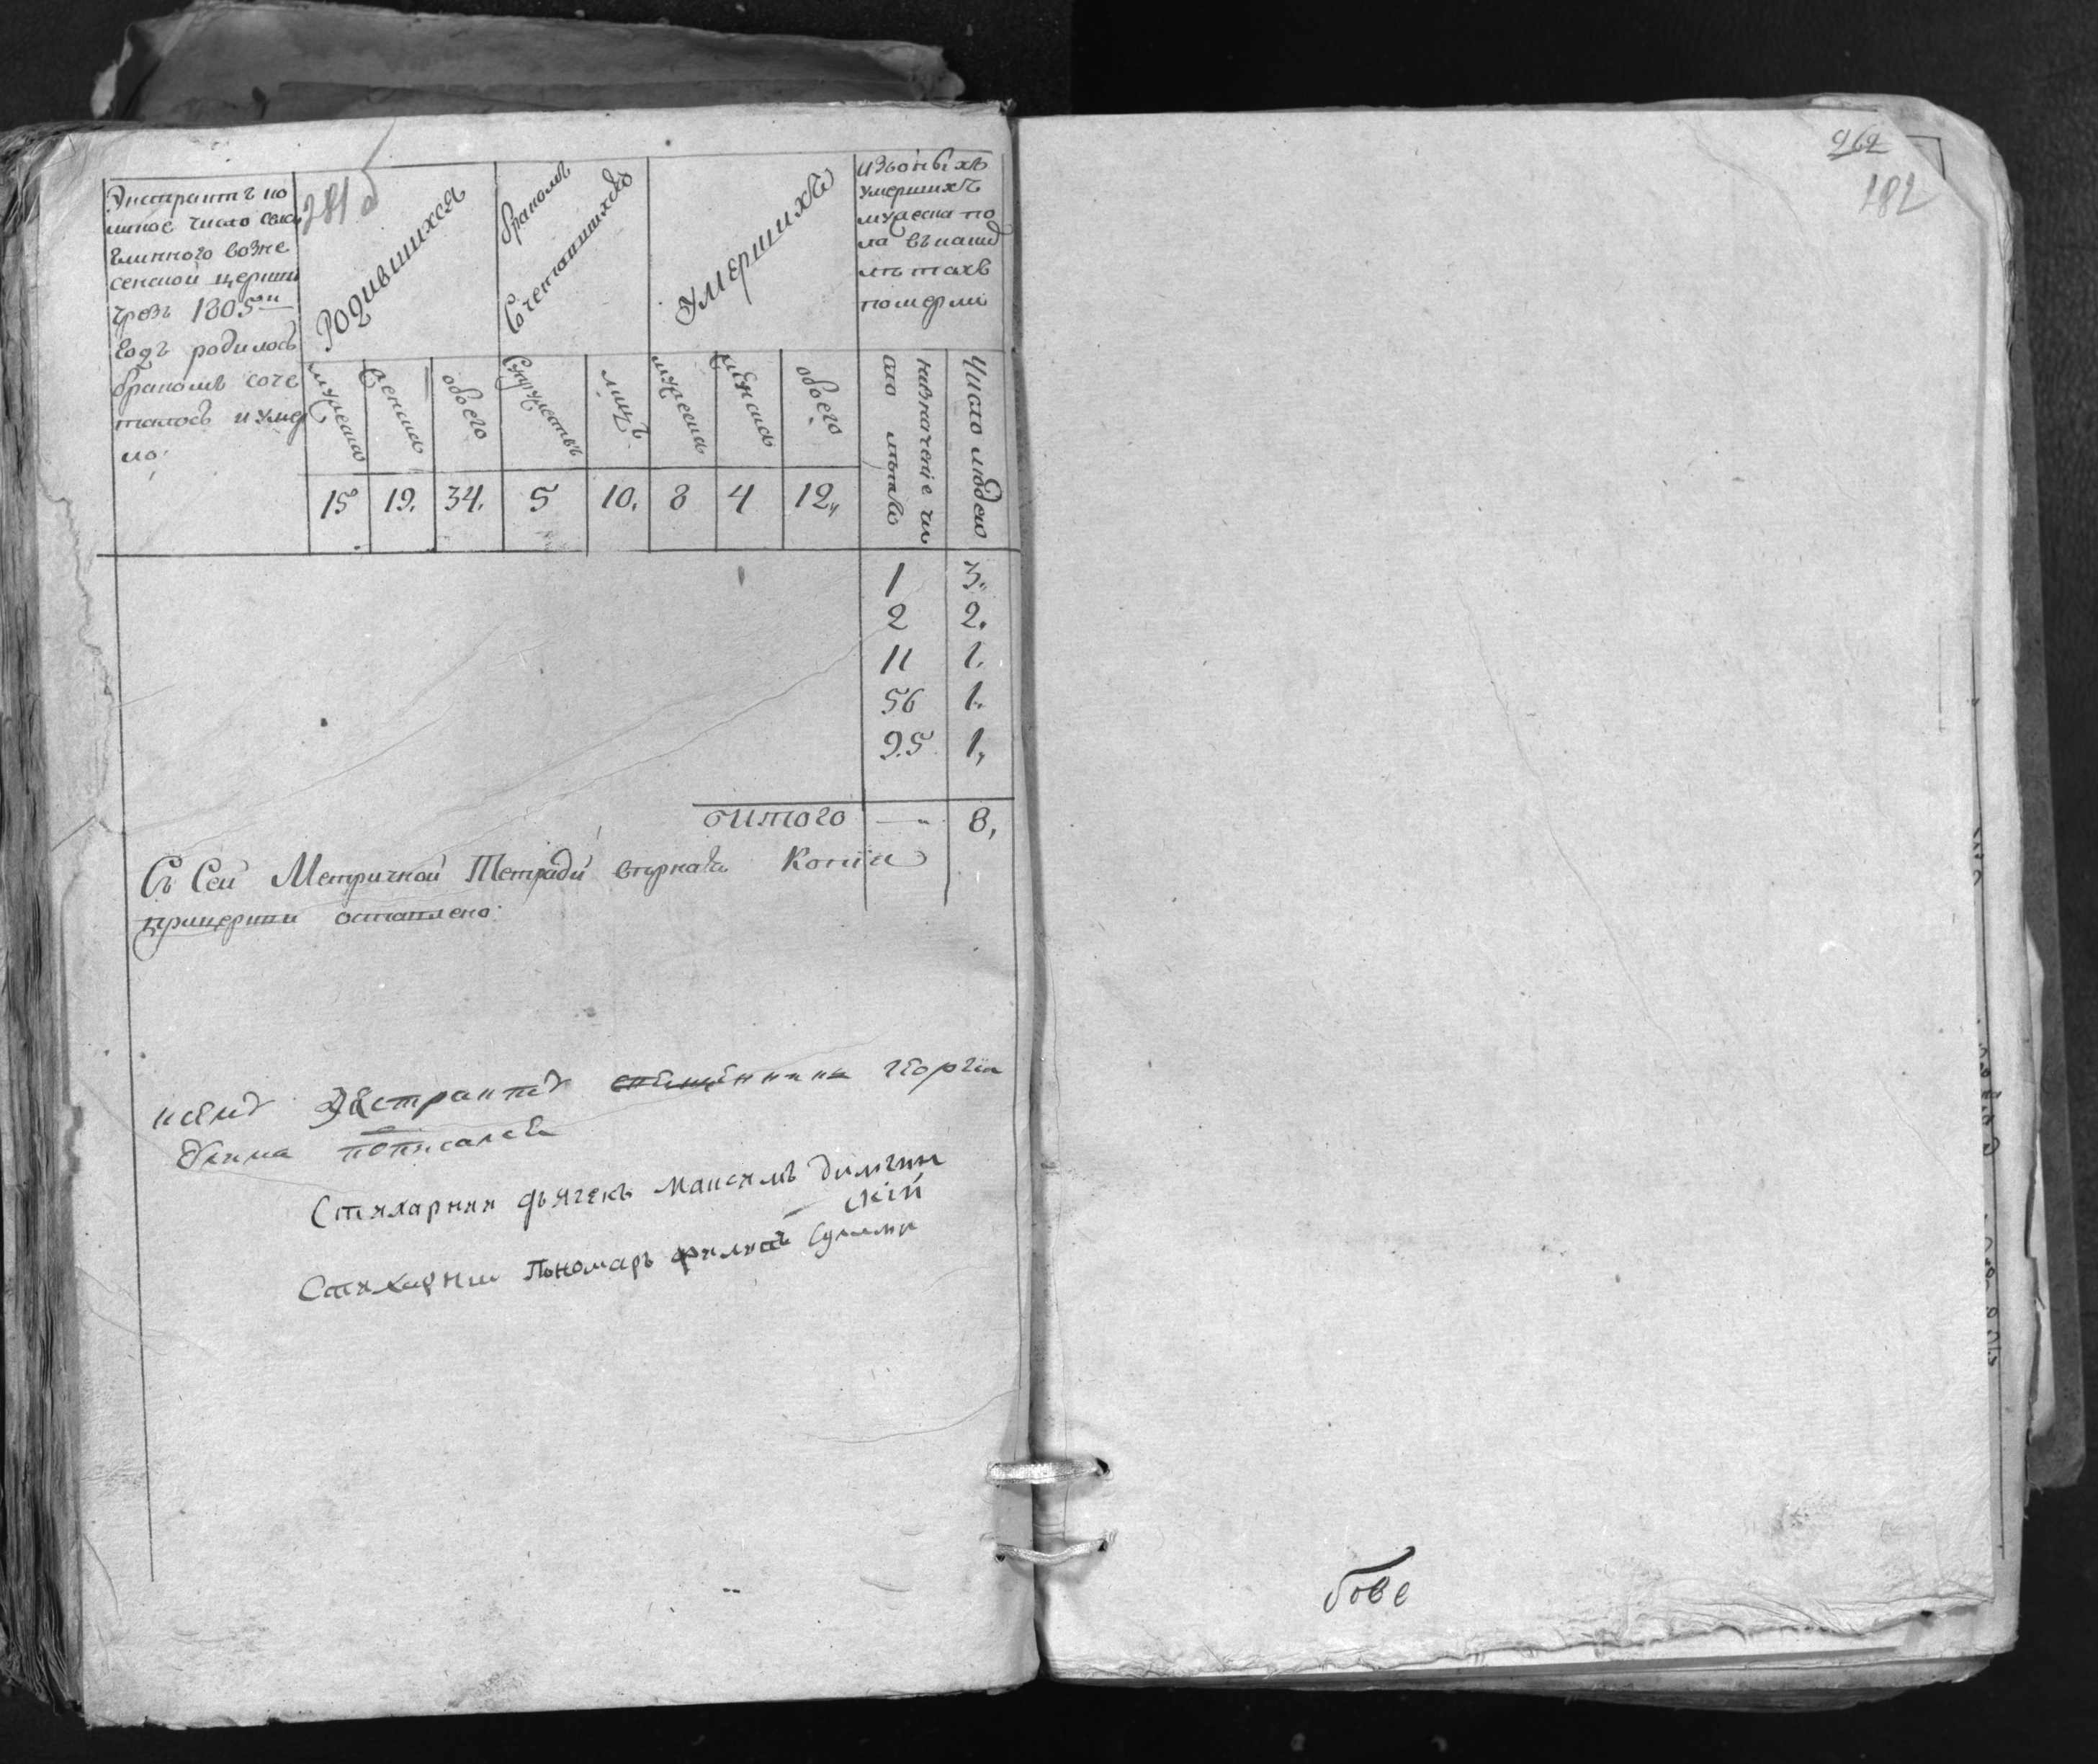 Экстрактъ ко
ликое число села
возне
сенской церкви
чрезъ 1805й
годъ родилось
бракомъ соче
талось и умер
ло.
281 б
Родившихся
бракомъ
Сочетавшихся
Умершихъ
изъ оныхъ
умершихъ
мужеска по
ла въ какид
лѣтахъ
померли
мужеска
женска
обоего
Супружествъ
лицъ
мужеска
женска
обоего
название чи
сло лѣтъ
Число людей
15 19. 34. 5 10. 8 4 12„
1 3.
2 2.
11 1.
56 1.
95 1,
итого — 8,
Съ Сей Метричной Тетради вѣрная Копія
прицеркви оставлено.
ксемъ Экстрактъ священникъ георгіи
подписался
Стихарнии дьячекъ Максимъ
скій
Стихарнии Пономарь филипъ
262
182